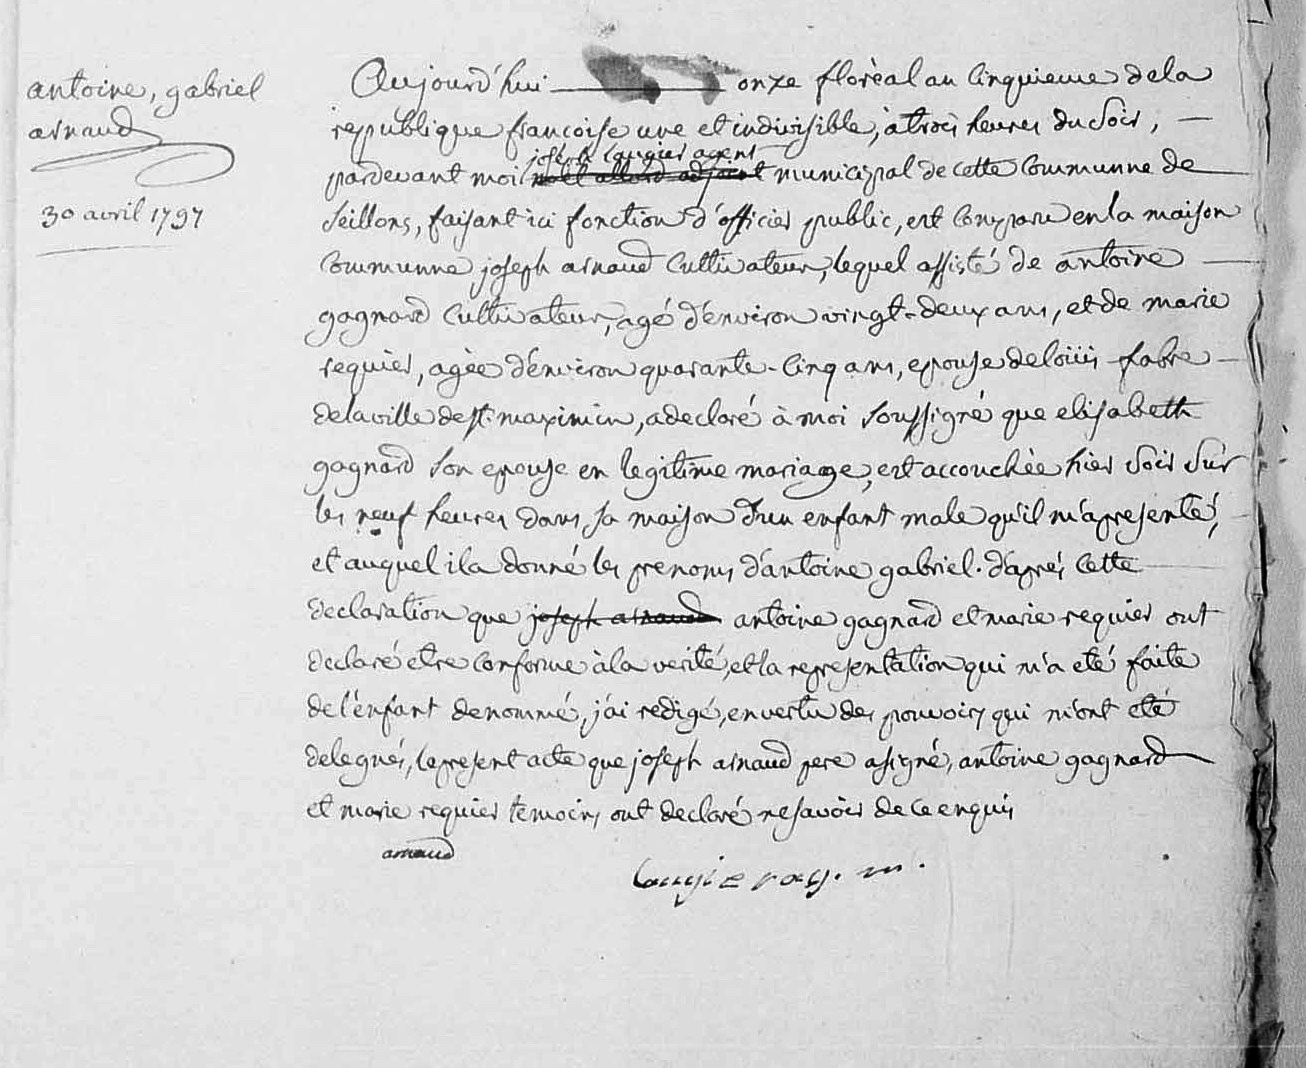 antoine, gabriel
arnaud
30 avril 1797
Aujourd'hui onze florèal an cinquieme de la
republique francoise une et indivisible, à trois heures du soir,
joseph laugier agent
pardevant moi noel allard adjoint municipal de cette commune de
seillons, faisant ici fonction d'officier public, est comparu en la maison
commune joseph arnaud cultivateur, lequel assisté de antoine
gagnard cultivateur, agé d'environ vingt-deux ans, et de marie
requier, agèe d'environ quarante-cinq ans, epouse de loüis fabre
de la ville de st. maximin, a declaré à moi soussigné que elisabeth
gagnard son epouse en legitime mariage, est accouchée hier soir sur
les neuf heures dans sa maison d'un enfant male qu'il m'a presenté,
et auquel il a donné les prenoms d'antoine gabriel. d'aprés cette
declaration que joseph arnaud antoine gagnard et marie requier ont
declaré etre conforme à la verité, et la representation qui m'a eté faite
de l'enfant denommé, j'ai redigé, en vertu des pouvoirs qui m'ont eté
delegués, le present acte que joseph arnaud pere a signé, antoine gagnard
et marie requier temoins ont declaré ne savoir de ce enquis
arnaud
laugier ag. m.